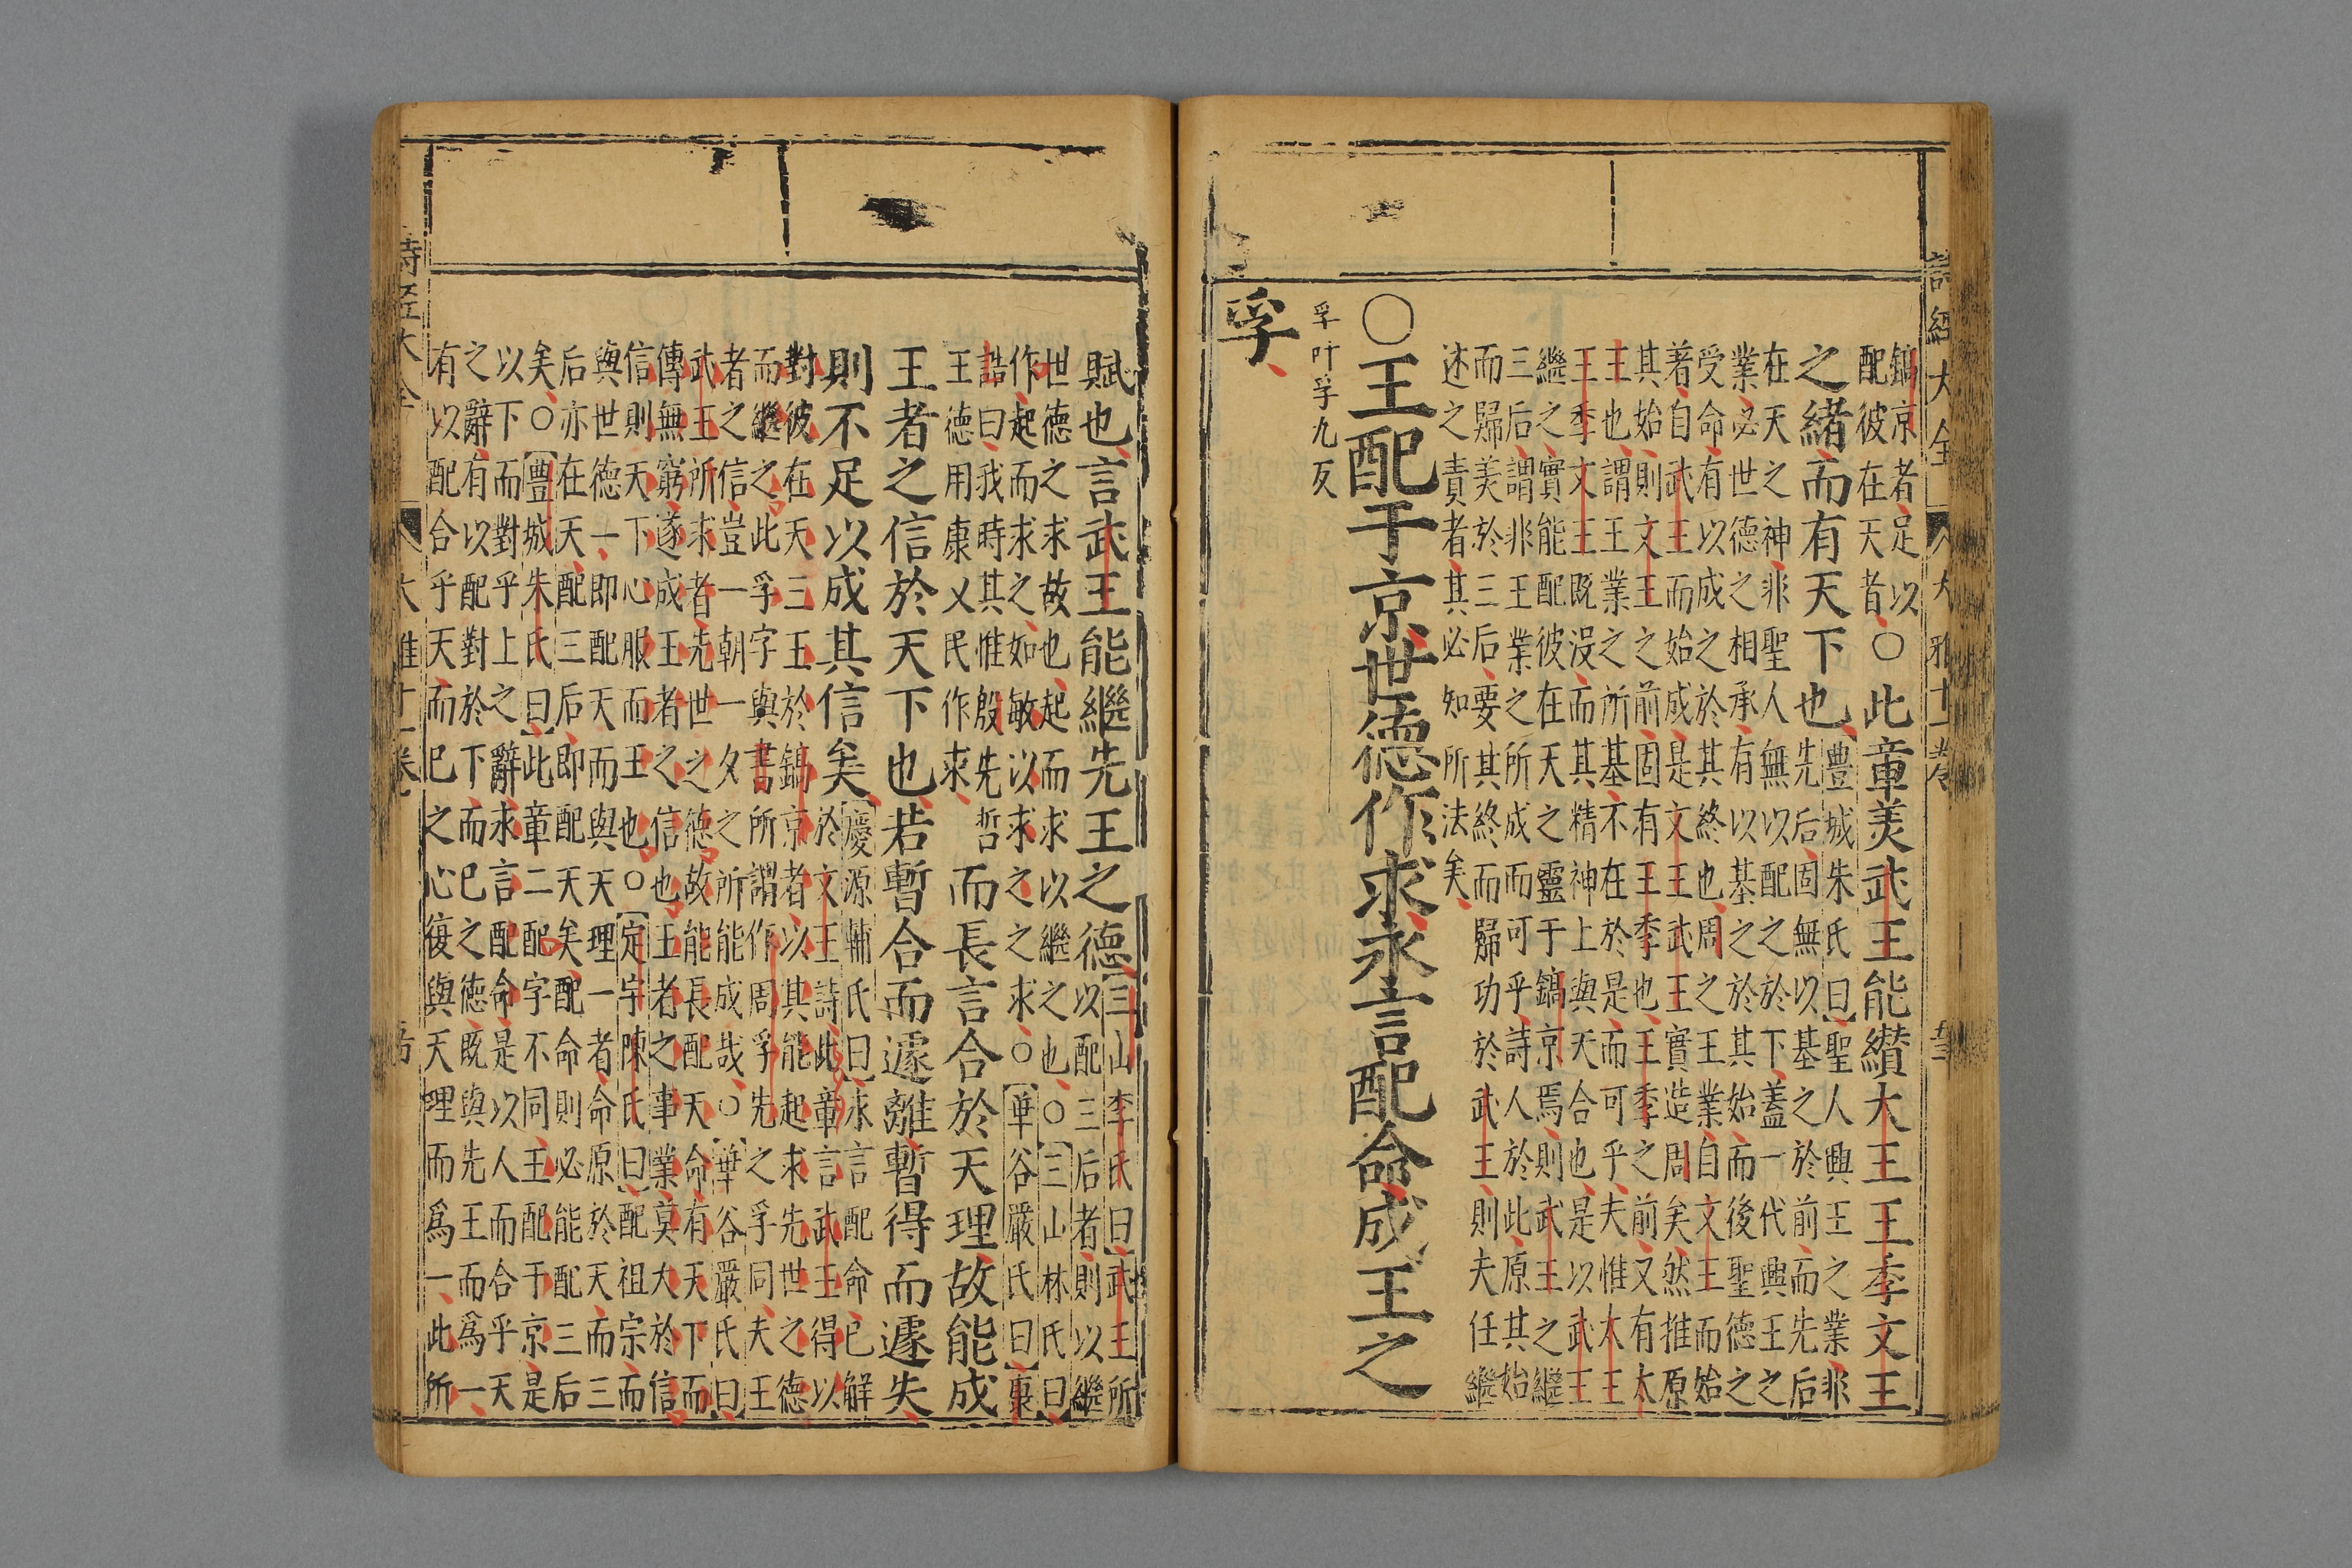 詩經大全 大雅十六卷
鎬京者足以
配彼在天者
○此章美武王能纘大王王季文王
之緒而有天下也
豐城朱氏曰聖人興王之業非
先后固無以基之於前而先后
在天之神非聖人無以配之於下蓋一代興王之
業必世德之相承有以基之於其始而後聖德之
受命有以成之於其終也周之王業自文王而始
著自武王而始成是文王武王實造周矣然推原
其始則文王之前固有王季也王季之前又有太
王也謂王業之所基不在於是而可乎夫惟太王
王季文王既沒而其精神上與天合也是以武王
繼之實能配彼在天之靈于鎬京焉則武王之繼
三后謂非王業之所成而可乎詩人於此原其始
而歸美於三后要其終而歸功於武王則夫任繼
述之責者其必知所法矣
○王配于京世德作求永言配命成王之
孚叶孚尤反
孚
賦也言武王能繼先王之德
三山李氏曰武王所
以配三后者則以繼
世德之求故也起而求以繼之也○三山林氏曰
作起而求之如敏以求之之求○華谷嚴氏曰裏
誥曰我時其惟殷先哲
王德用康乂民作求
而長言合於天理故能成
王者之信於天下也若暫合而遽離暫得而遽失
則不足以成其信矣
慶源輔氏曰永言配命已解
於文王詩此章言武王得以
對彼在天三王於鎬京者以其能起求先世之德
而繼之此孚字與書所謂作周孚先之孚同夫王
者之信豈一朝一夕之所能成哉○華谷嚴氏曰
武王所求者先世之德故能長配天命有天下而
傳無窮遂成王者之信也王者之事業莫大於信
信則天下心服而王也○定宇陳氏曰配祖宗而
與世德一即配天而與天理一者命原於天而三
后亦在天配三后即配天矣配命則必能配三后
矣○豐城朱氏曰此章二配字不同王配于京是
以下而對乎上之辭求言配命是以人而合乎天
之辭有以配對於下而已之德既與先王而爲一
有以配合乎天而已之心復與天理而爲一此所